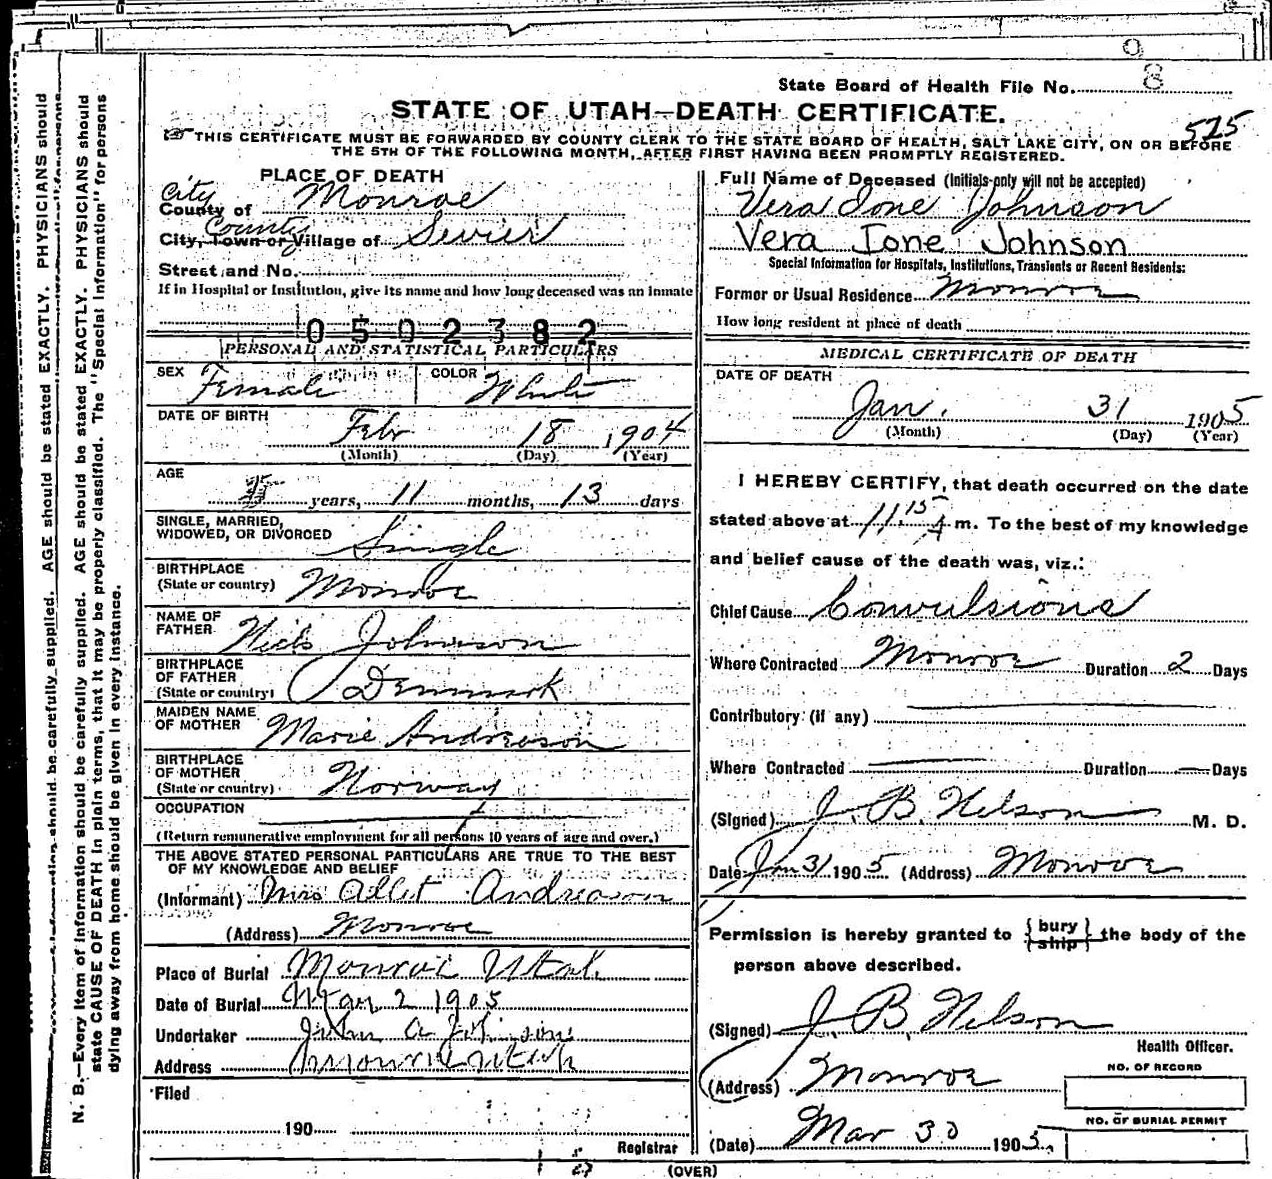 State Board of Health File No. 98
STATE OF UTAH—DEATH CERTIFICATE.
525
THIS CERTIFICATE MUST BE FORWARDED BY COUNTY CLERK TO THE STATE BOARD OF HEALTH, SALT LAKE CITY, ON OR BEFORE
THE 5TH OF THE FOLLOWING MONTH, AFTER FIRST HAVING BEEN PROMPTLY REGISTERED.
PLACE OF DEATH
City
County of Monroe
County
City, Town or Village of Sevier
Street and No.
If in Hospital or Institution, give its name and how long deceased was an inmate
0502382
PERSONAL AND STATISTICAL PARTICULARS
SEX Female COLOR White
DATE OF BIRTH Febr 18 1904
(Month) (Day) (Year)
AGE years, 11 months, 13 days
SINGLE, MARRIED,
WIDOWED, OR DIVORCED Single
BIRTHPLACE
(State or country) Monroe
NAME OF
FATHER Niels Johnson
BIRTHPLACE
OF FATHER
(State or country) Denmark
MAIDEN NAME
OF MOTHER Marie Andreason
BIRTHPLACE
OF MOTHER
(State or country) Norway
OCCUPATION
(Return remunerative employment for all persons 10 years of age and over.)
THE ABOVE STATED PERSONAL PARTICULARS ARE TRUE TO THE BEST
OF MY KNOWLEDGE AND BELIEF
(Informant) Mrs Andreason
(Address) Monroe
Place of Burial Monroe Utah.
Date of Burial 2 1905
Undertaker John A Johnson
Address Monroe Utah
Filed
190
Registrar
Full Name of Deceased (Initials only will not be accepted)
Vera Ione Johnson
Vera Ione Johnson
Special Information for Hospitals, Institutions, Transients or Recent Residents:
Former or Usual Residence Monroe
How long resident at place of death
MEDICAL CERTIFICATE OF DEATH
DATE OF DEATH
Jan. 31 1905
(Month) (Day) (Year)
I HEREBY CERTIFY, that death occurred on the date
stated above at 11.15 A m. To the best of my knowledge
and belief cause of the death was, viz.:
Chief Cause Convulsions
Where Contracted Monroe Duration 2 Days
Contributory (if any)
Where Contracted Duration Days
(Signed) J. B. Nelson M. D.
Date Jan 31 1905 (Address) Monroe
Permission is hereby granted to {bury ship} the body of the
person above described.
(Signed) J. B. Nelson
Health Officer.
(Address) Monroe
NO. OF RECORD
NO. OF BURIAL PERMIT
(Date) Mar 30 1905.
(OVER)
N. B.—Every item of information should be carefully supplied. AGE should be stated EXACTLY. PHYSICIANS should
state CAUSE OF DEATH in plain terms, that it may be properly classified. The "Special Information" for persons
dying away from home should be given in every instance.